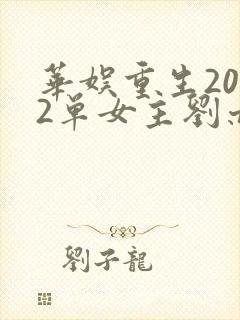 華娛重生20
2單女主劉
劉子龍